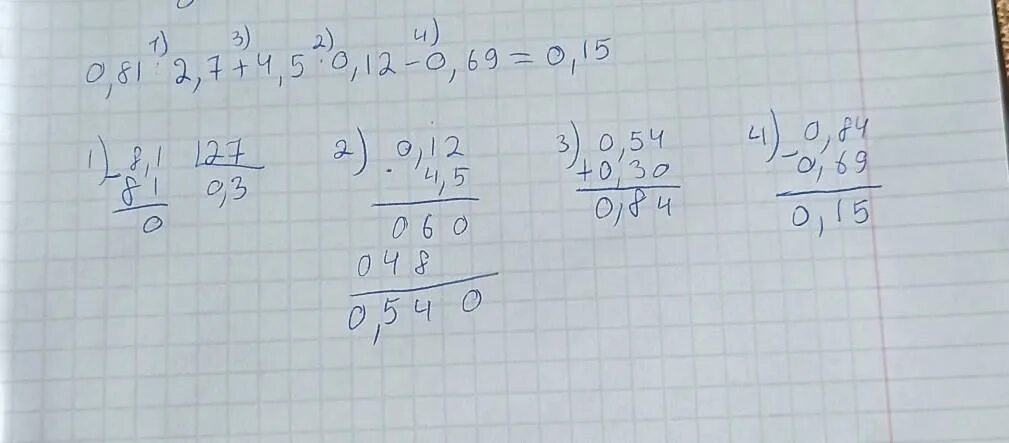 1) 3) 2) 4)
0,81 : 2,7 + 4,5 · 0,12 - 0,69 = 0,15
1) - 8,1 | 27
81 0,3
0
2) 0,12
· 4,5
060
048
0,540
3) 0,54
+ 0,30
0,84
4) - 0,84
0,69
0,15